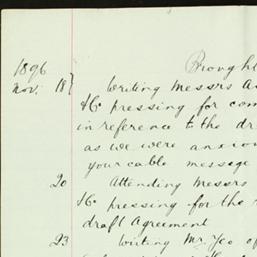 1896 Brought
Nov. 18 Writing Messrs
& Co pressing for com
in reference to the dr
as we were anxiou
your cable message
20 Attending Messrs
& Co pressing for the
draft Agreement
23 Writing Mr. Yeo of